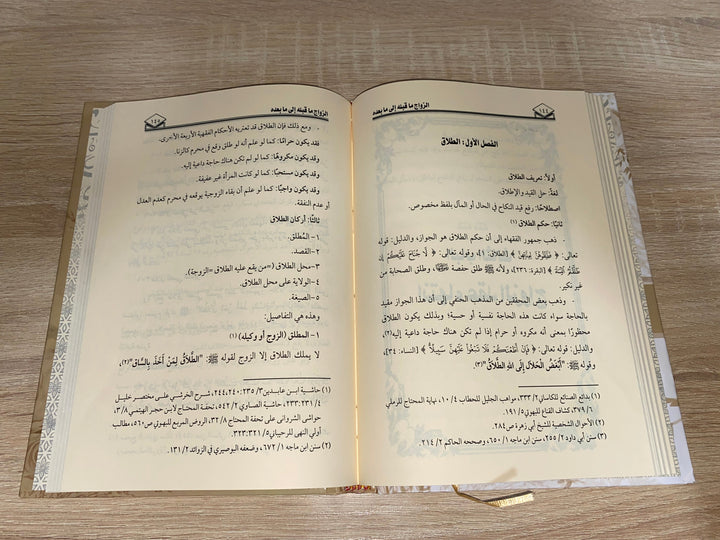 الزواج ما قبله إلى ما بعده
١٤٤
الفصل الأول: الطلاق
أولاً: تعريف الطلاق
لغةً: حل القيد والإطلاق.
اصطلاحًا: رفع قيد النكاح في الحال أو المآل بلفظ مخصوص.
ثانيًا: حكم الطلاق (١)
٠ ذهب جمهور الفقهاء إلى أن حكم الطلاق هو الجواز، والدليل: قوله
تعالى: ﴿ فَطَلِّقُوهُنَّ لِعِدَّتِهِنَّ ﴾ [الطلاق: ١]، وقوله تعالى: ﴿ لَّا جُنَاحَ عَلَيْكُمْ إِن
طَلَّقْتُمُ النِّسَاءَ ﴾ [البقرة: ٢٣٦]، ولأنه ﷺ طلق حفصة، وطلق الصحابة من
غير نكير.
٠ وذهب بعض المحققين من المذهب الحنفي إلى أن هذا الجواز مقيد
بالحاجة سواء كانت هذه الحاجة نفسية أو حسية؛ وبذلك يكون الطلاق
محظورًا بمعنى أنه مكروه أو حرام إذا لم تكن هناك حاجة داعية إليه(٢)،
والدليل: قوله تعالى: ﴿ فَإِنْ أَطَعْنَكُمْ فَلَا تَبْغُوا عَلَيْهِنَّ سَبِيلًا ﴾ [النساء: ٣٤]،
وقوله ﷺ: "أَبْغَضُ الْحَلَالِ إِلَى اللهِ الطَّلَاقُ"(٣).
(١) بدائع الصنائع للكاساني ٢/ ٣٣٣، مواهب الجليل للحطاب ٤/ ١٠، نهاية المحتاج للرملي
٦/ ٣٧٩، كشاف القناع للبهوتي ٥/ ١٩١.
(٢) الأحوال الشخصية للشيخ أبي زهرة ص ٢٨٤.
(٣) سنن أبي داود ٢/ ٢٥٥، سنن ابن ماجه ١/ ٦٥٠، وصححه الحاكم ٢/ ٢١٤.
الزواج ما قبله إلى ما بعده
١٤٥
٠ ومع ذلك فإن الطلاق قد تعتريه الأحكام الفقهية الأربعة الأخرى.
فقد يكون حرامًا: كما لو علم أنه لو طلق وقع في محرم كالزنا.
وقد يكون مكروهًا: كما لو لم تكن هناك حاجة داعية إليه.
وقد يكون مستحبًا: كما لو كانت المرأة غير عفيفة.
وقد يكون واجبًا: كما لو علم أن بقاء الزوجية يوقعه في محرم كعدم العدل
أو عدم النفقة.
ثالثًا: أركان الطلاق
١- المُطلق.
٢- القصد.
٣- محل الطلاق (=من يقع عليه الطلاق =الزوجة).
٤- الولاية على محل الطلاق.
٥- الصيغة.
وهذه هي التفاصيل:
١- المطلق (الزوج أو وكيله) (١)
لا يملك الطلاق إلا الزوج لقوله ﷺ: "الطَّلَاقُ لِمَنْ أَخَذَ بِالسَّاقِ"(٢)،
(١) حاشية ابن عابدين ٣/ ٢٣٥، ٢٤٠، ٢٤٤، شرح الخرشي على مختصر خليل
٤/ ٢٣١، ٢٣٣، حاشية الصاوي ٢/ ٥٤٢، تحفة المحتاج لابن حجر الهيتمي ٨/ ٣،
حواشي الشرواني على تحفة المحتاج ٨/ ٣٢، الروض المربع للبهوتي ص ٥٦٠، مطالب
أولي النهى للرحيباني ٥/ ٣٢١، ٣٢٣.
(٢) سنن ابن ماجه ١/ ٦٧٢، وضعفه البوصيري في الزوائد ٢/ ١٣١.